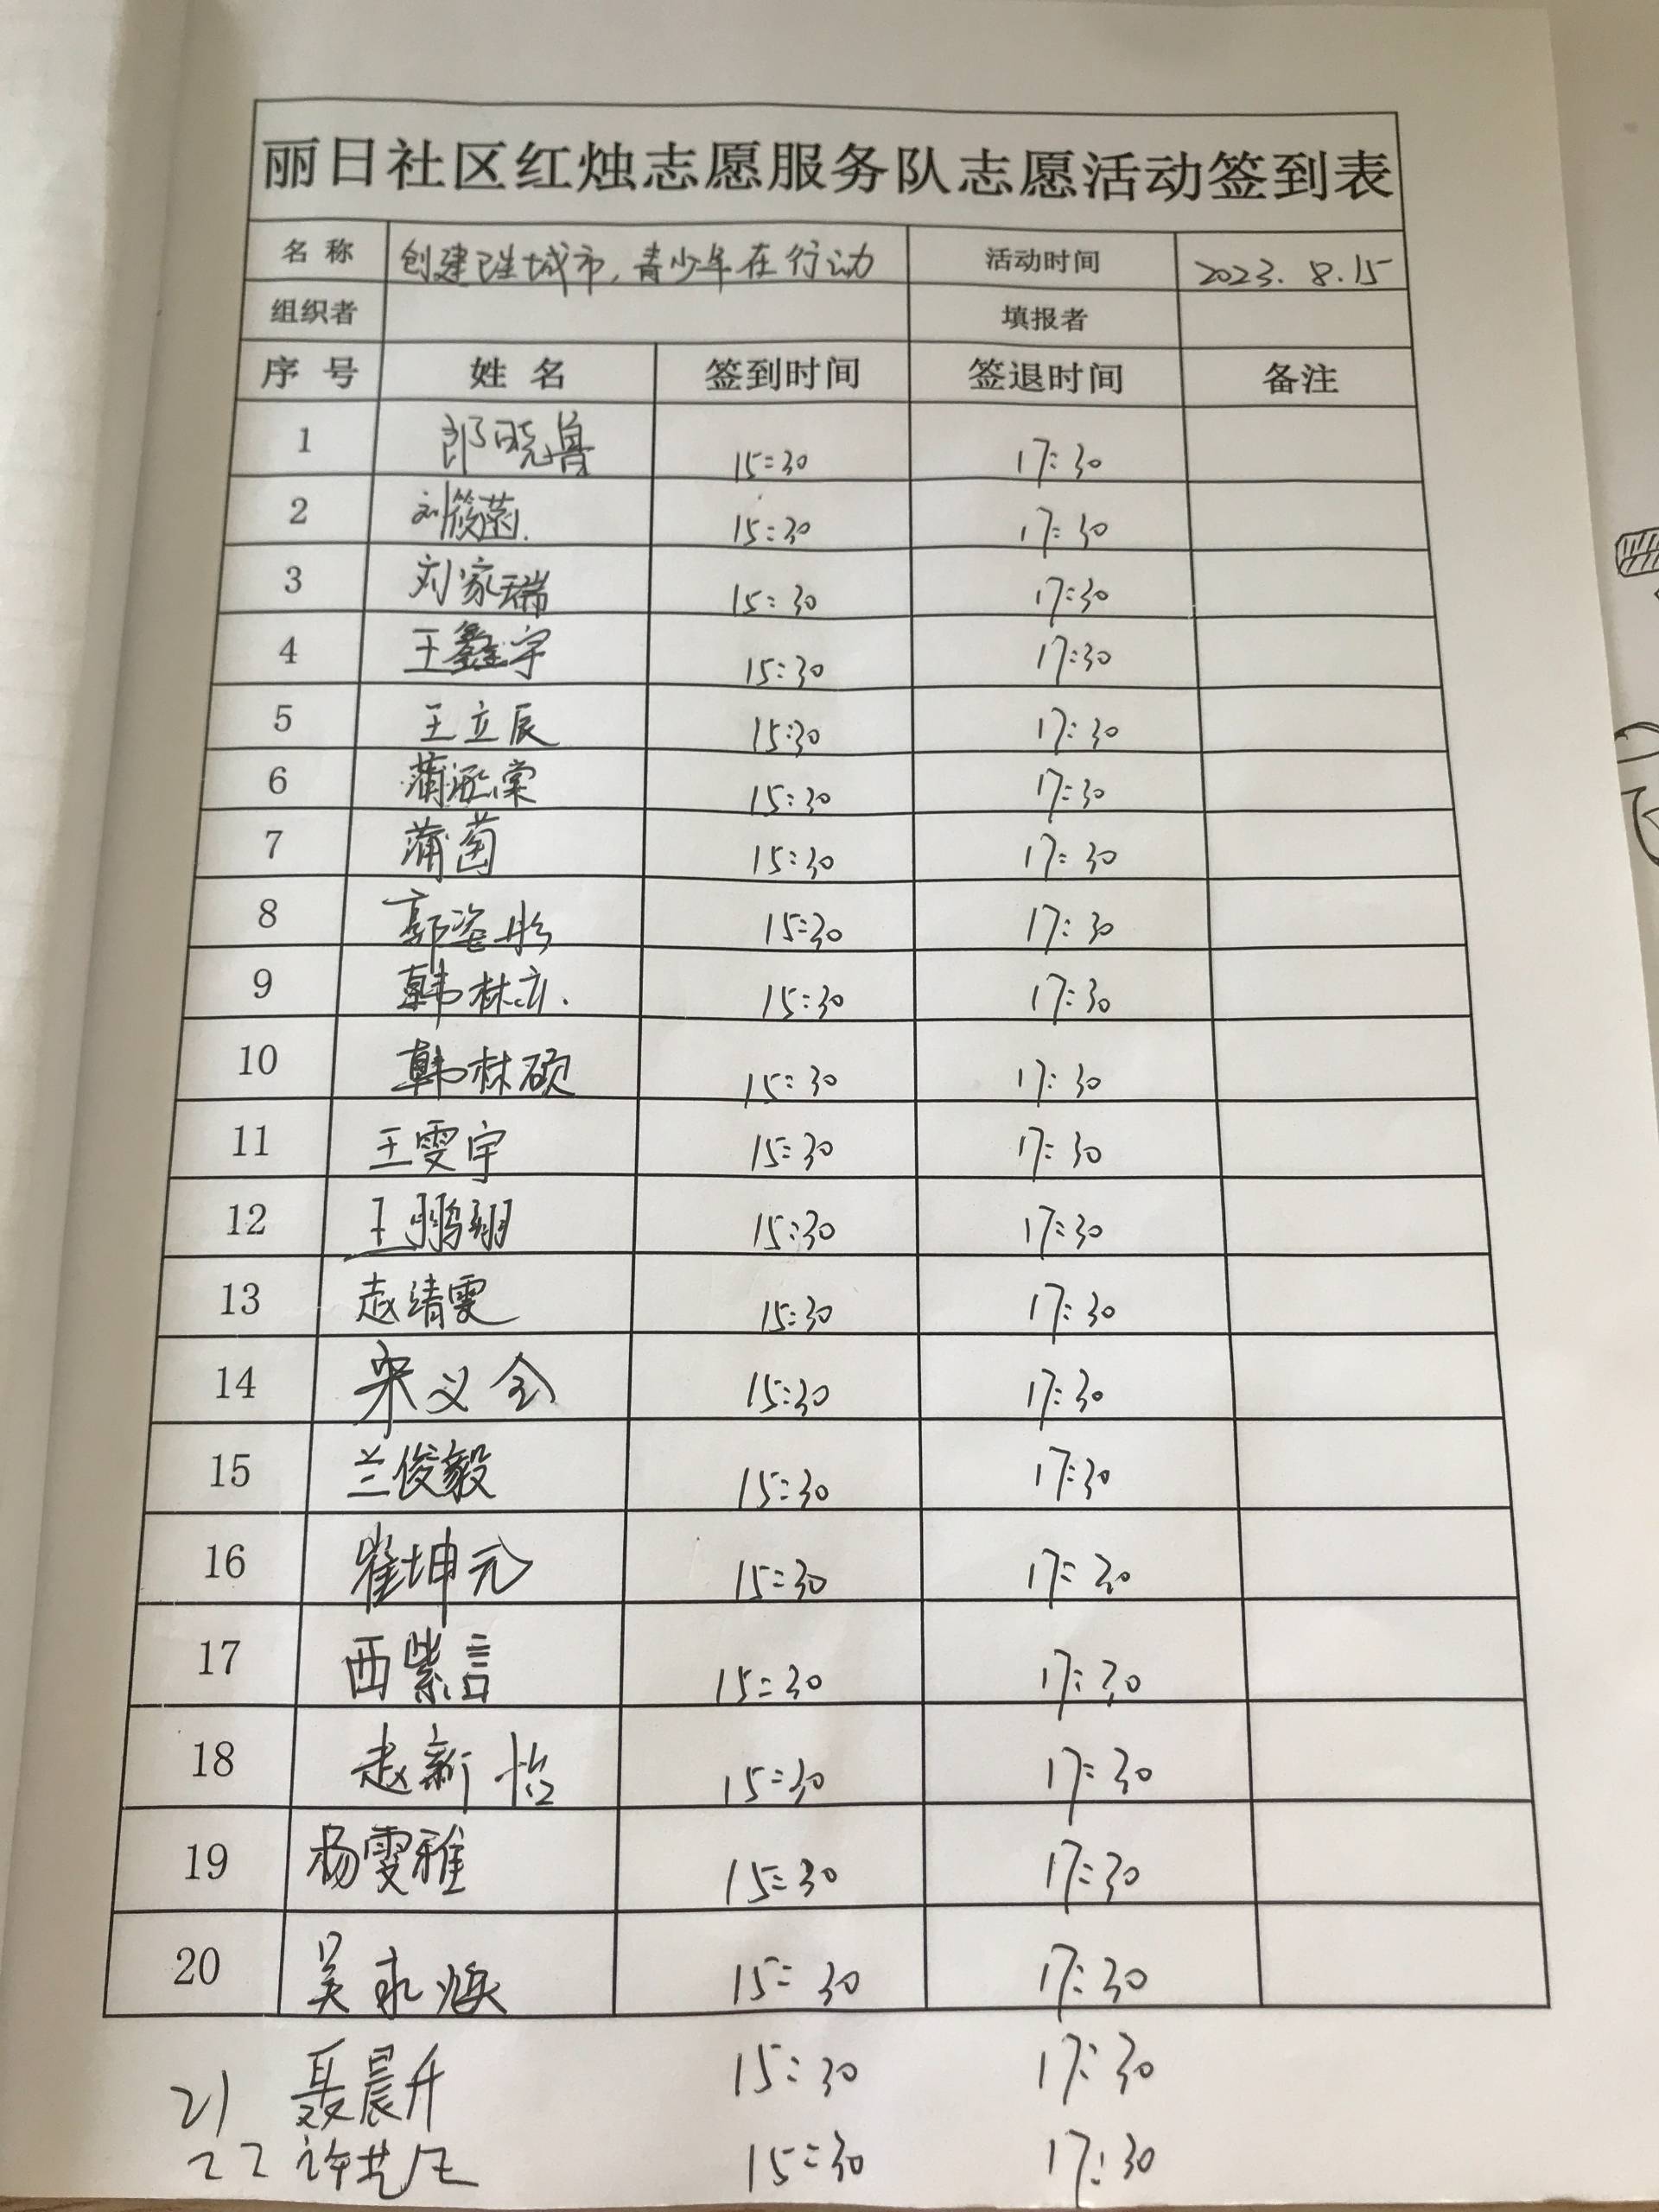 丽日社区红烛志愿服务队志愿活动签到表
名 称 创建卫生城市，青少年在行动 活动时间 2023.8.15
组织者 填报者
序 号 姓 名 签到时间 签退时间 备注
1 郎晓鲁 15:30 17:30
2 刘筱菡. 15:30 17:30
3 刘家瑞 15:30 17:30
4 王鑫宇 15:30 17:30
5 王立辰 15:30 17:30
6 蒲 棠 15:30 17:30
7 蒲茵 15:30 17:30
8 郭姿彤 15:30 17:30
9 韩林 15:30 17:30
10 韩林硕 15:30 17:30
11 王雯宇 15:30 17:30
12 王鹏翔 15:30 17:30
13 赵靖雯 15:30 17:30
14 宋义全 15:30 17:30
15 兰俊毅 15:30 17:30
16 崔坤元 15:30 17:30
17 西紫言 15:30 17:30
18 赵新怡 15:30 17:30
19 杨雯雅 15:30 17:30
20 吴永焕 15:30 17:30
21 聂晨升 15:30 17:30
22 许艺 15:30 17:30